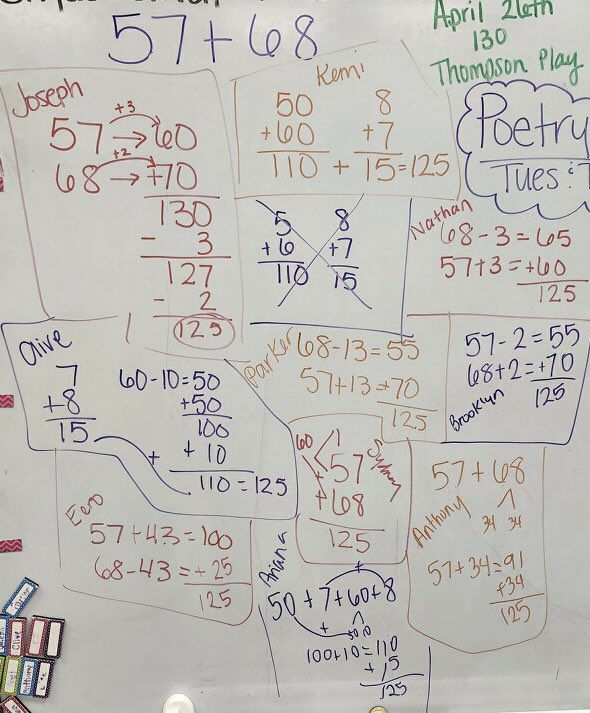 57 + 68
April 26th
130
Thompson Play
Poetry
Tues:
Joseph
+3
57 → 60
+2
68 → +70
130
- 3
127
- 2
125
Kemi
50 8
+60 +7
110 + 15 = 125
5 8
+6 +7
110 15
Nathan
68 - 3 = 65
57 + 3 = +60
125
Olive
7
+8
15
60 - 10 = 50
+50
100
+ 10
+
110 = 125
Parker
68 - 13 = 55
57 + 13 = +70
125
Brooklyn
57 - 2 = 55
68 + 2 = +70
125
Sydney
60 1
57
+68
125
Anthony
57 + 68
34 34
57 + 34 = 91
+34
125
Ezra
57 + 43 = 100
68 - 43 = + 25
125
Anana
+
50 + 7 + 60 + 8
+
50 10
100 + 10 = 110
+ 15
125
Olive